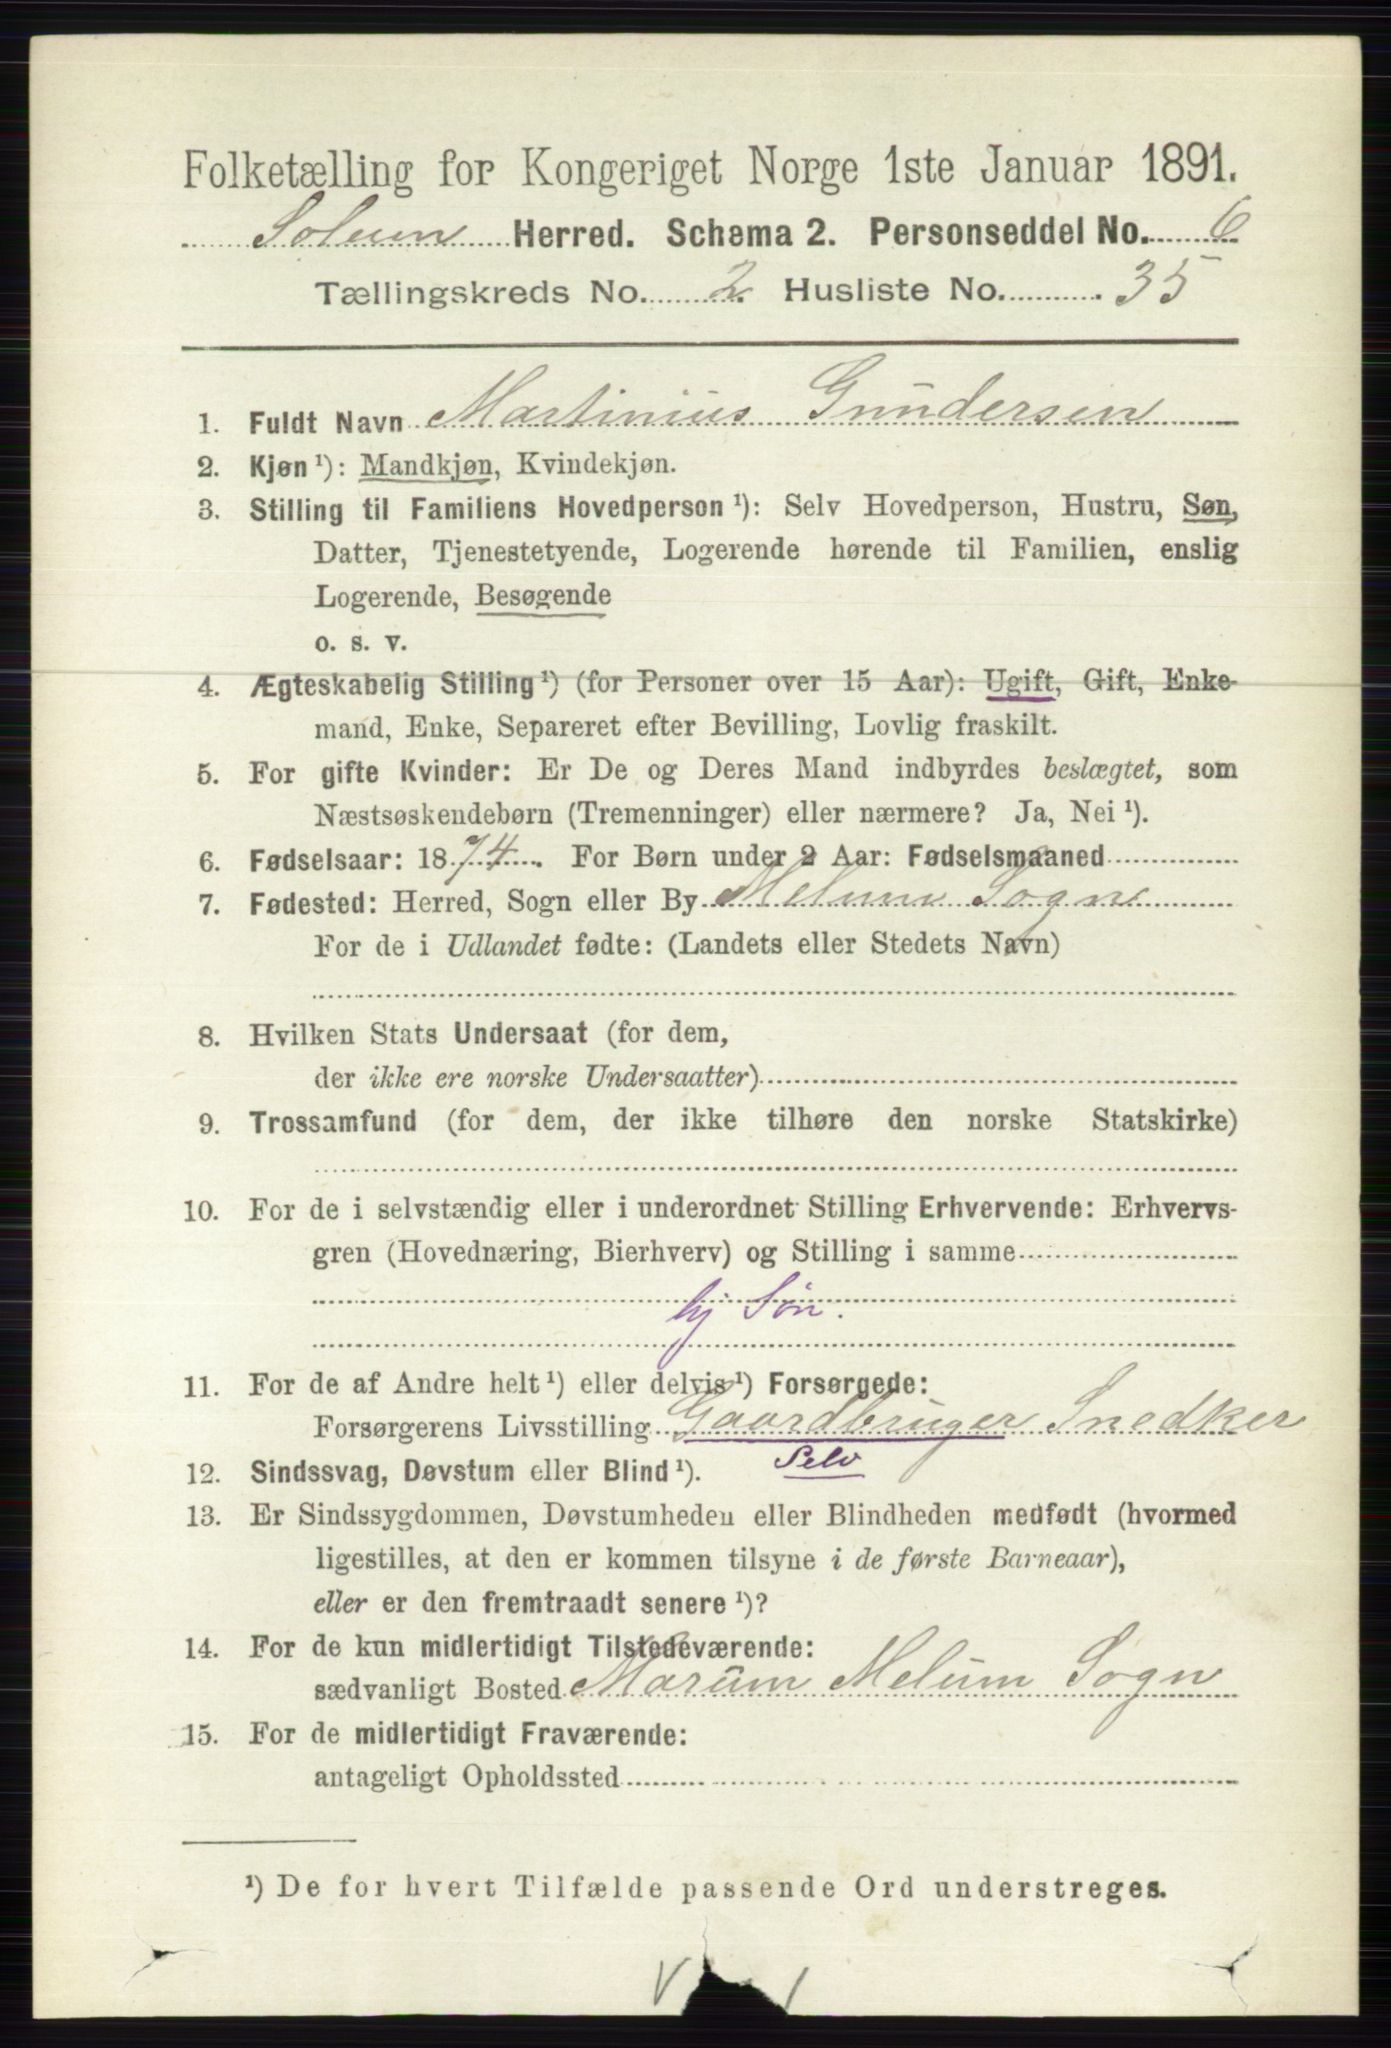 Folketælling for Kongeriget Norge 1ste Januar 1891.
Solum Herred. Schema 2. Personseddel No. 6
Tællingskreds No. 2. Husliste No. 35
1. Fuldt Navn Martinius Gundersen
2. Kjøn ¹): Mandkjøn, Kvindekjøn.
3. Stilling til Familiens Hovedperson ¹): Selv Hovedperson, Hustru, Søn,
Datter, Tjenestetyende, Logerende hørende til Familien, enslig
Logerende, Besøgende
o. s. v.
4. Ægteskabelig Stilling ¹) (for Personer over 15 Aar): Ugift, Gift, Enke-
mand, Enke, Separeret efter Bevilling, Lovlig fraskilt.
5. For gifte Kvinder: Er De og Deres Mand indbyrdes beslægtet, som
Næstsøskendebørn (Tremenninger) eller nærmere? Ja, Nei ¹).
6. Fødselsaar: 1874. For Børn under 2 Aar: Fødselsmaaned
7. Fødested: Herred, Sogn eller By Melum Sogn
For de i Udlandet fødte: (Landets eller Stedets Navn)
8. Hvilken Stats Undersaat (for dem,
der ikke ere norske Undersaatter)
9. Trossamfund (for dem, der ikke tilhøre den norske Statskirke)
10. For de i selvstændig eller i underordnet Stilling Erhvervende: Erhvervs-
gren (Hovednæring, Bierhverv) og Stilling i samme
hj Søn.
11. For de af Andre helt ¹) eller delvis ¹) Forsørgede:
Forsørgerens Livsstilling Gaardbruger Snedker
Selv
12. Sindssvag, Døvstum eller Blind ¹).
13. Er Sindssygdommen, Døvstumheden eller Blindheden medfødt (hvormed
ligestilles, at den er kommen tilsyne i de første Barneaar),
eller er den fremtraadt senere ¹)?
14. For de kun midlertidigt Tilstedeværende:
sædvanligt Bosted Marum Melum Sogn
15. For de midlertidigt Fraværende:
antageligt Opholdssted
¹) De for hvert Tilfælde passende Ord understreges.